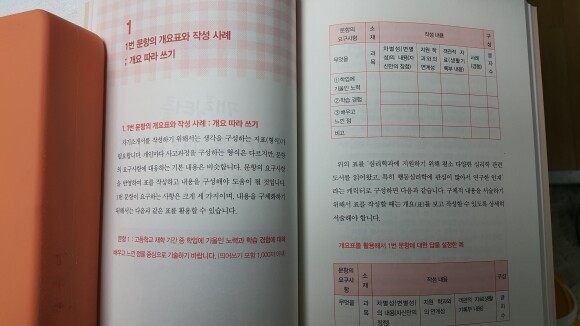 1
1번 문항의 개요표와 작성 사례
: 개요 따라 쓰기
1. 1번 문항의 개요표와 작성 사례 : 개요 따라 쓰기
자기소개서를 작성하기 위해서는 생각을 구성하는 지표(형식)가
필요합니다. 개인마다 사고과정을 구성하는 형식은 다르지만, 문항
의 요구사항에 대응하는 기본 내용은 비슷합니다. 문항의 요구사항
을 반영하여 표를 작성하고 내용을 구성해야 도움이 될 것입니다.
1번 문항이 요구하는 사항은 크게 세 가지이며, 내용을 구체화하기
위해서는 다음과 같은 표를 활용할 수 있습니다.
문항 1 : 고등학교 재학 기간 중 학업에 기울인 노력과 학습 경험에 대해
배우고 느낀 점을 중심으로 기술하기 바랍니다. (띄어쓰기 포함 1,000자 이내)
문항의 요구사항 소재 작성 내용 구성
무엇을 과목 차별성(변별성)의 내용(자신만의 장점) 지원 학과와의 연계성 사례(경험) 글자수
①학업에 기울인 노력
②학습 경험
③배우고 느낀 점
비고
위의 표를 '심리학과에 지원하기 위해 평소 다양한 심리학 관련
도서를 읽어왔고, 특히 행동심리학에 관심이 많아서 연구한 인재'
라는 캐릭터로 구성하면 다음과 같습니다. 구체적 내용을 서술하기
위해서 표를 작성할 때는 개요(표)를 보고 작성할 수 있도록 상세히
서술해야 합니다.
개요표를 활용해서 1번 문항에 대한 답을 설정한 예
문항의 요구사항 소재 작성 내용 구성
무엇을 과목 차별성(변별성)의 내용(자신만의 지원 학과와의 연계성